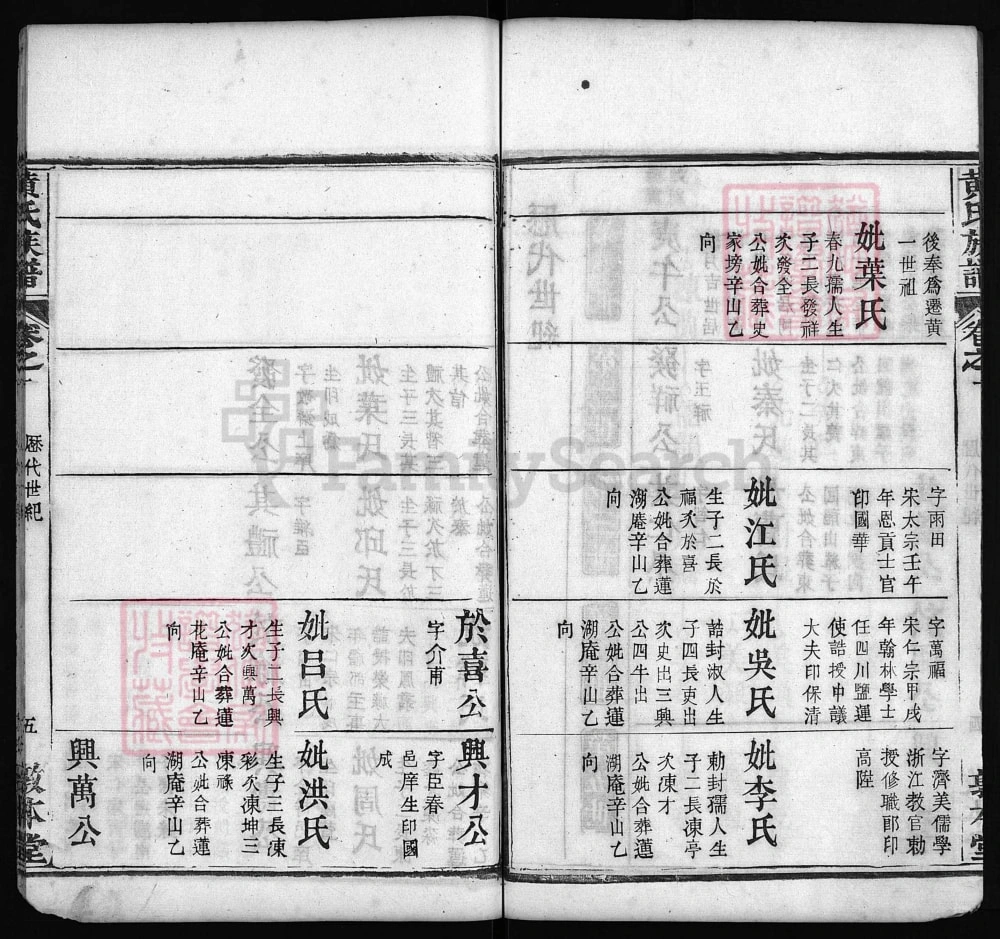 黄氏族譜
卷之一
後奉爲遷黄
一世祖
妣葉氏
春九孺人生
子二長發祥
次發全
公妣合葬史
家塝辛山乙
向
字雨田
宋太宗壬午
年恩貢士官
印國華
妣江氏
生子二長於
福次於喜
公妣合葬蓮
湖庵辛山乙
向
字萬福
宋仁宗甲戌
年翰林學士
任四川鹽運
使誥授中議
大夫印保清
妣吳氏
誥封淑人生
子四長吏出
次史出三興
公四牛出
公妣合葬蓮
湖庵辛山乙
向
字濟美儒學
浙江教官勅
授修職郎印
高陞
妣李氏
勅封孺人生
子二長凍亭
次凍才
公妣合葬蓮
湖庵辛山乙
向
於喜公
字介甫
妣呂氏
生子二長興
才次興萬
公妣合葬蓮
花庵辛山乙
向
興才公
字臣春
邑庠生印國
成
妣洪氏
生子三長凍
彩次凍坤三
凍祿
公妣合葬蓮
湖庵辛山乙
向
興萬公
黄氏族譜
卷之一
歷代世紀
五
敦本堂
FamilySearch